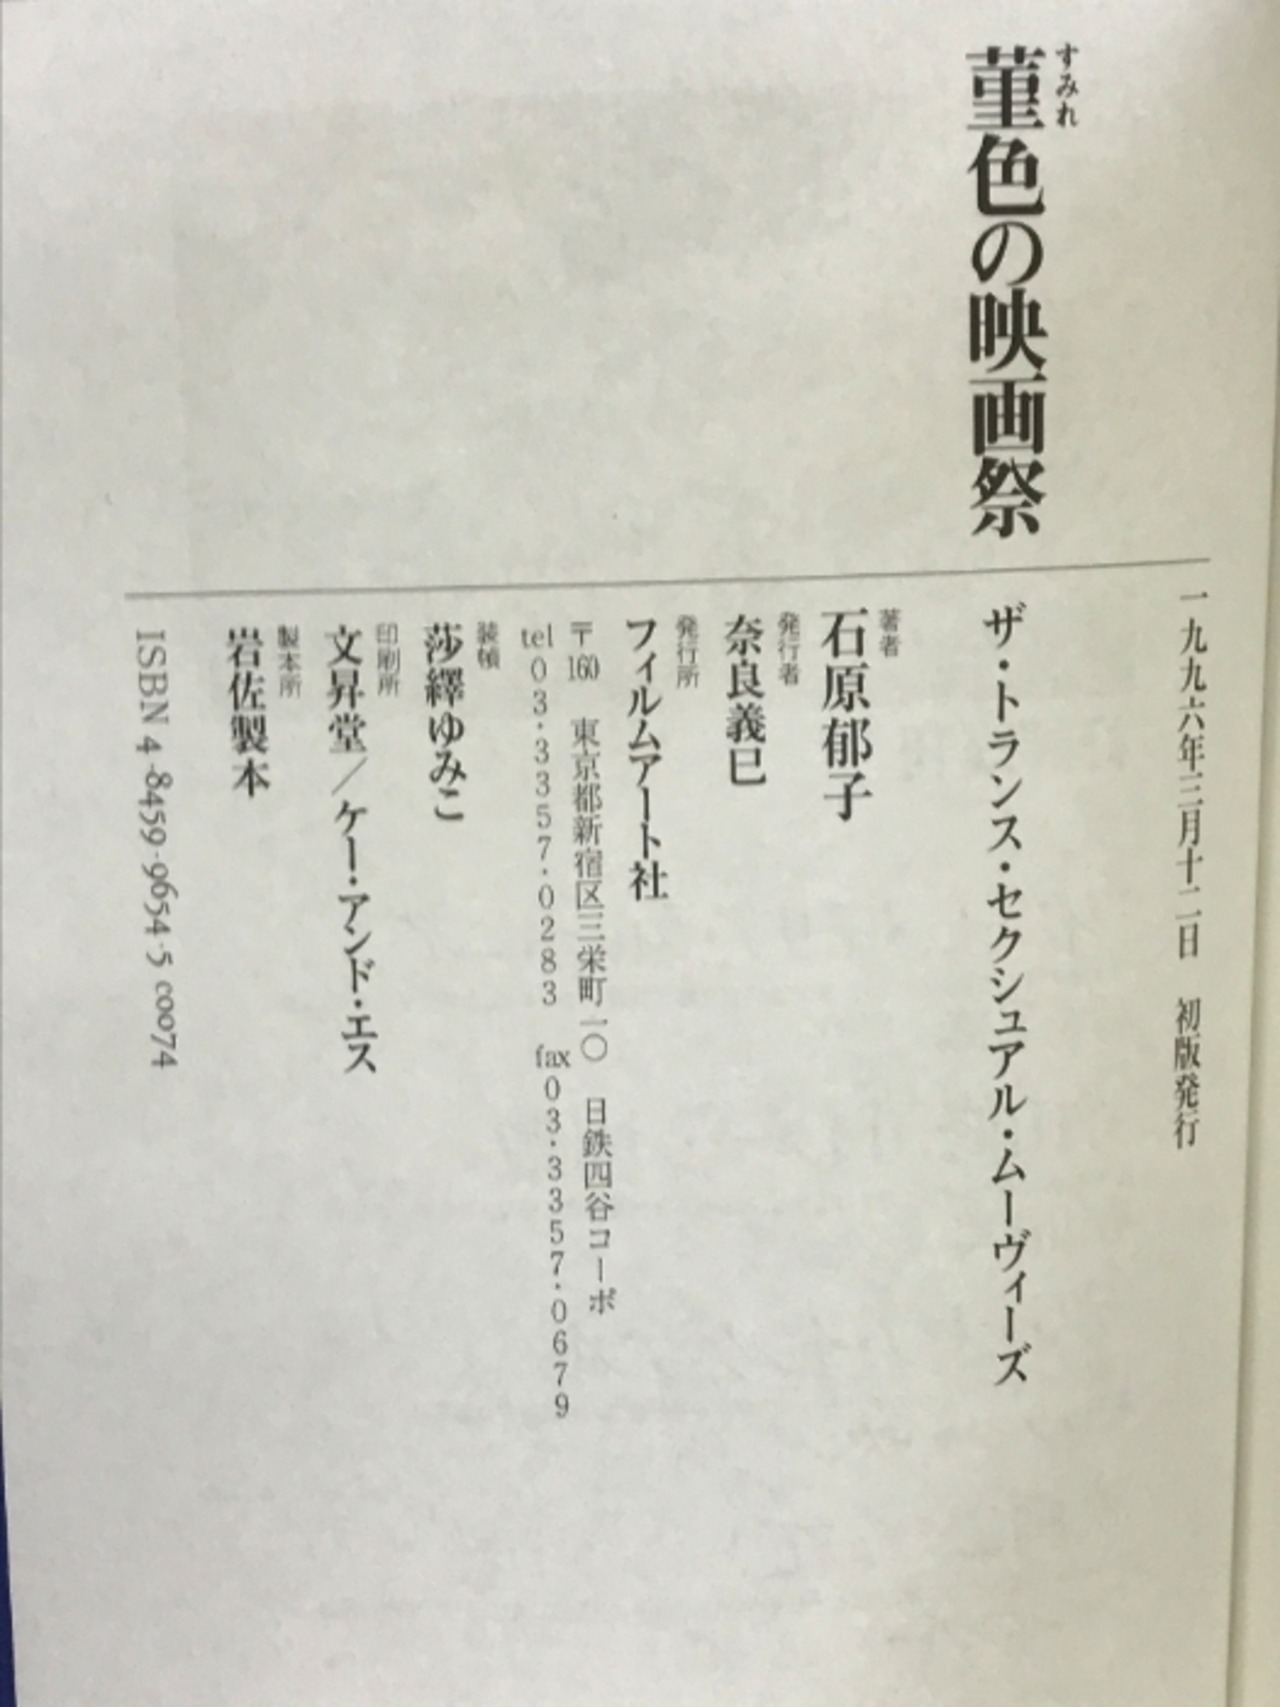 菫色の映画祭
すみれ
一九九六年三月十二日　初版発行
ザ・トランス・セクシュアル・ムーヴィーズ
著者
石原郁子
発行者
奈良義巳
発行所
フィルムアート社
〒160　東京都新宿区三栄町一〇　日鉄四谷コーポ
tel 03・3357・0283　fax 03・3357・0679
装幀
莎繹ゆみこ
印刷所
文昇堂／ケー・アンド・エス
製本所
岩佐製本
ISBN 4-8459-9654-5 C0074